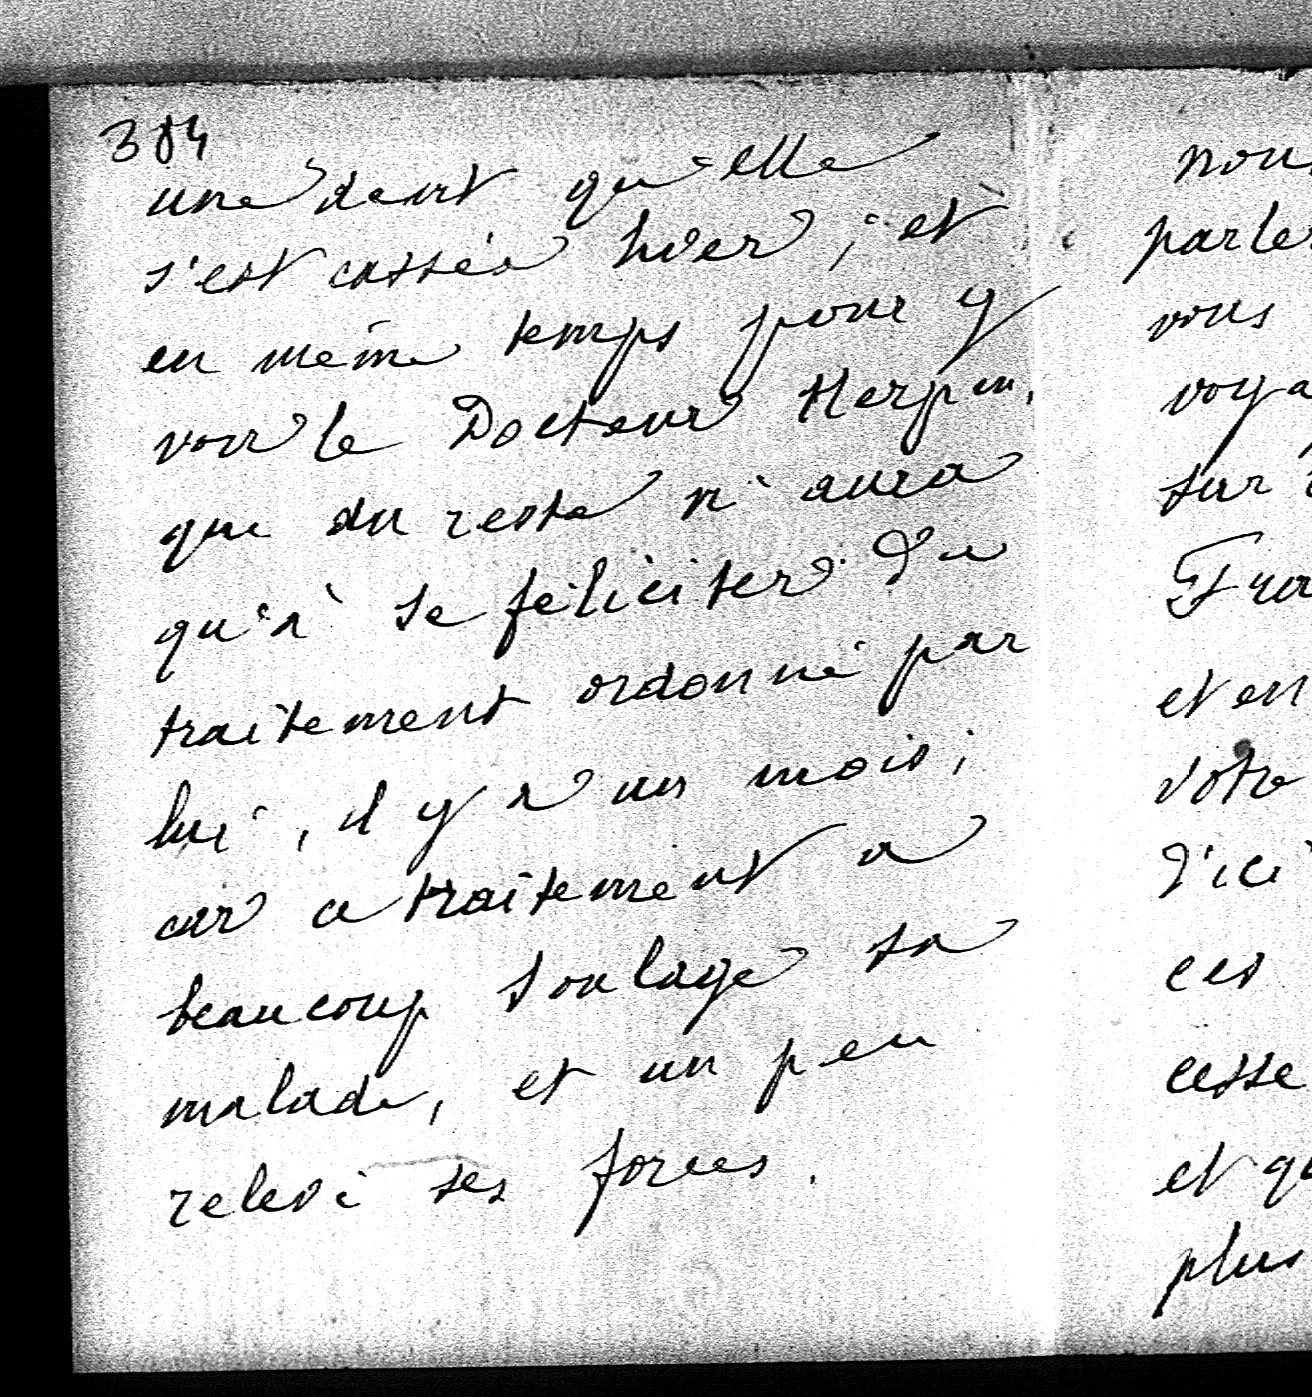 384
une dent qu'elle
s'est cassée hier ; et
en même temps pour y
voir le Docteur Herpin,
que du reste n'aura
qu'à se féliciter du
traitement ordonné par
lui, il y a un mois ;
car ce traitement a
beaucoup soulagé sa
malade, et un peu
relevé ses forces.
nous
parle
vous
voya
sur
et en
votre
d'ici
ces
cesse
et qu
plus